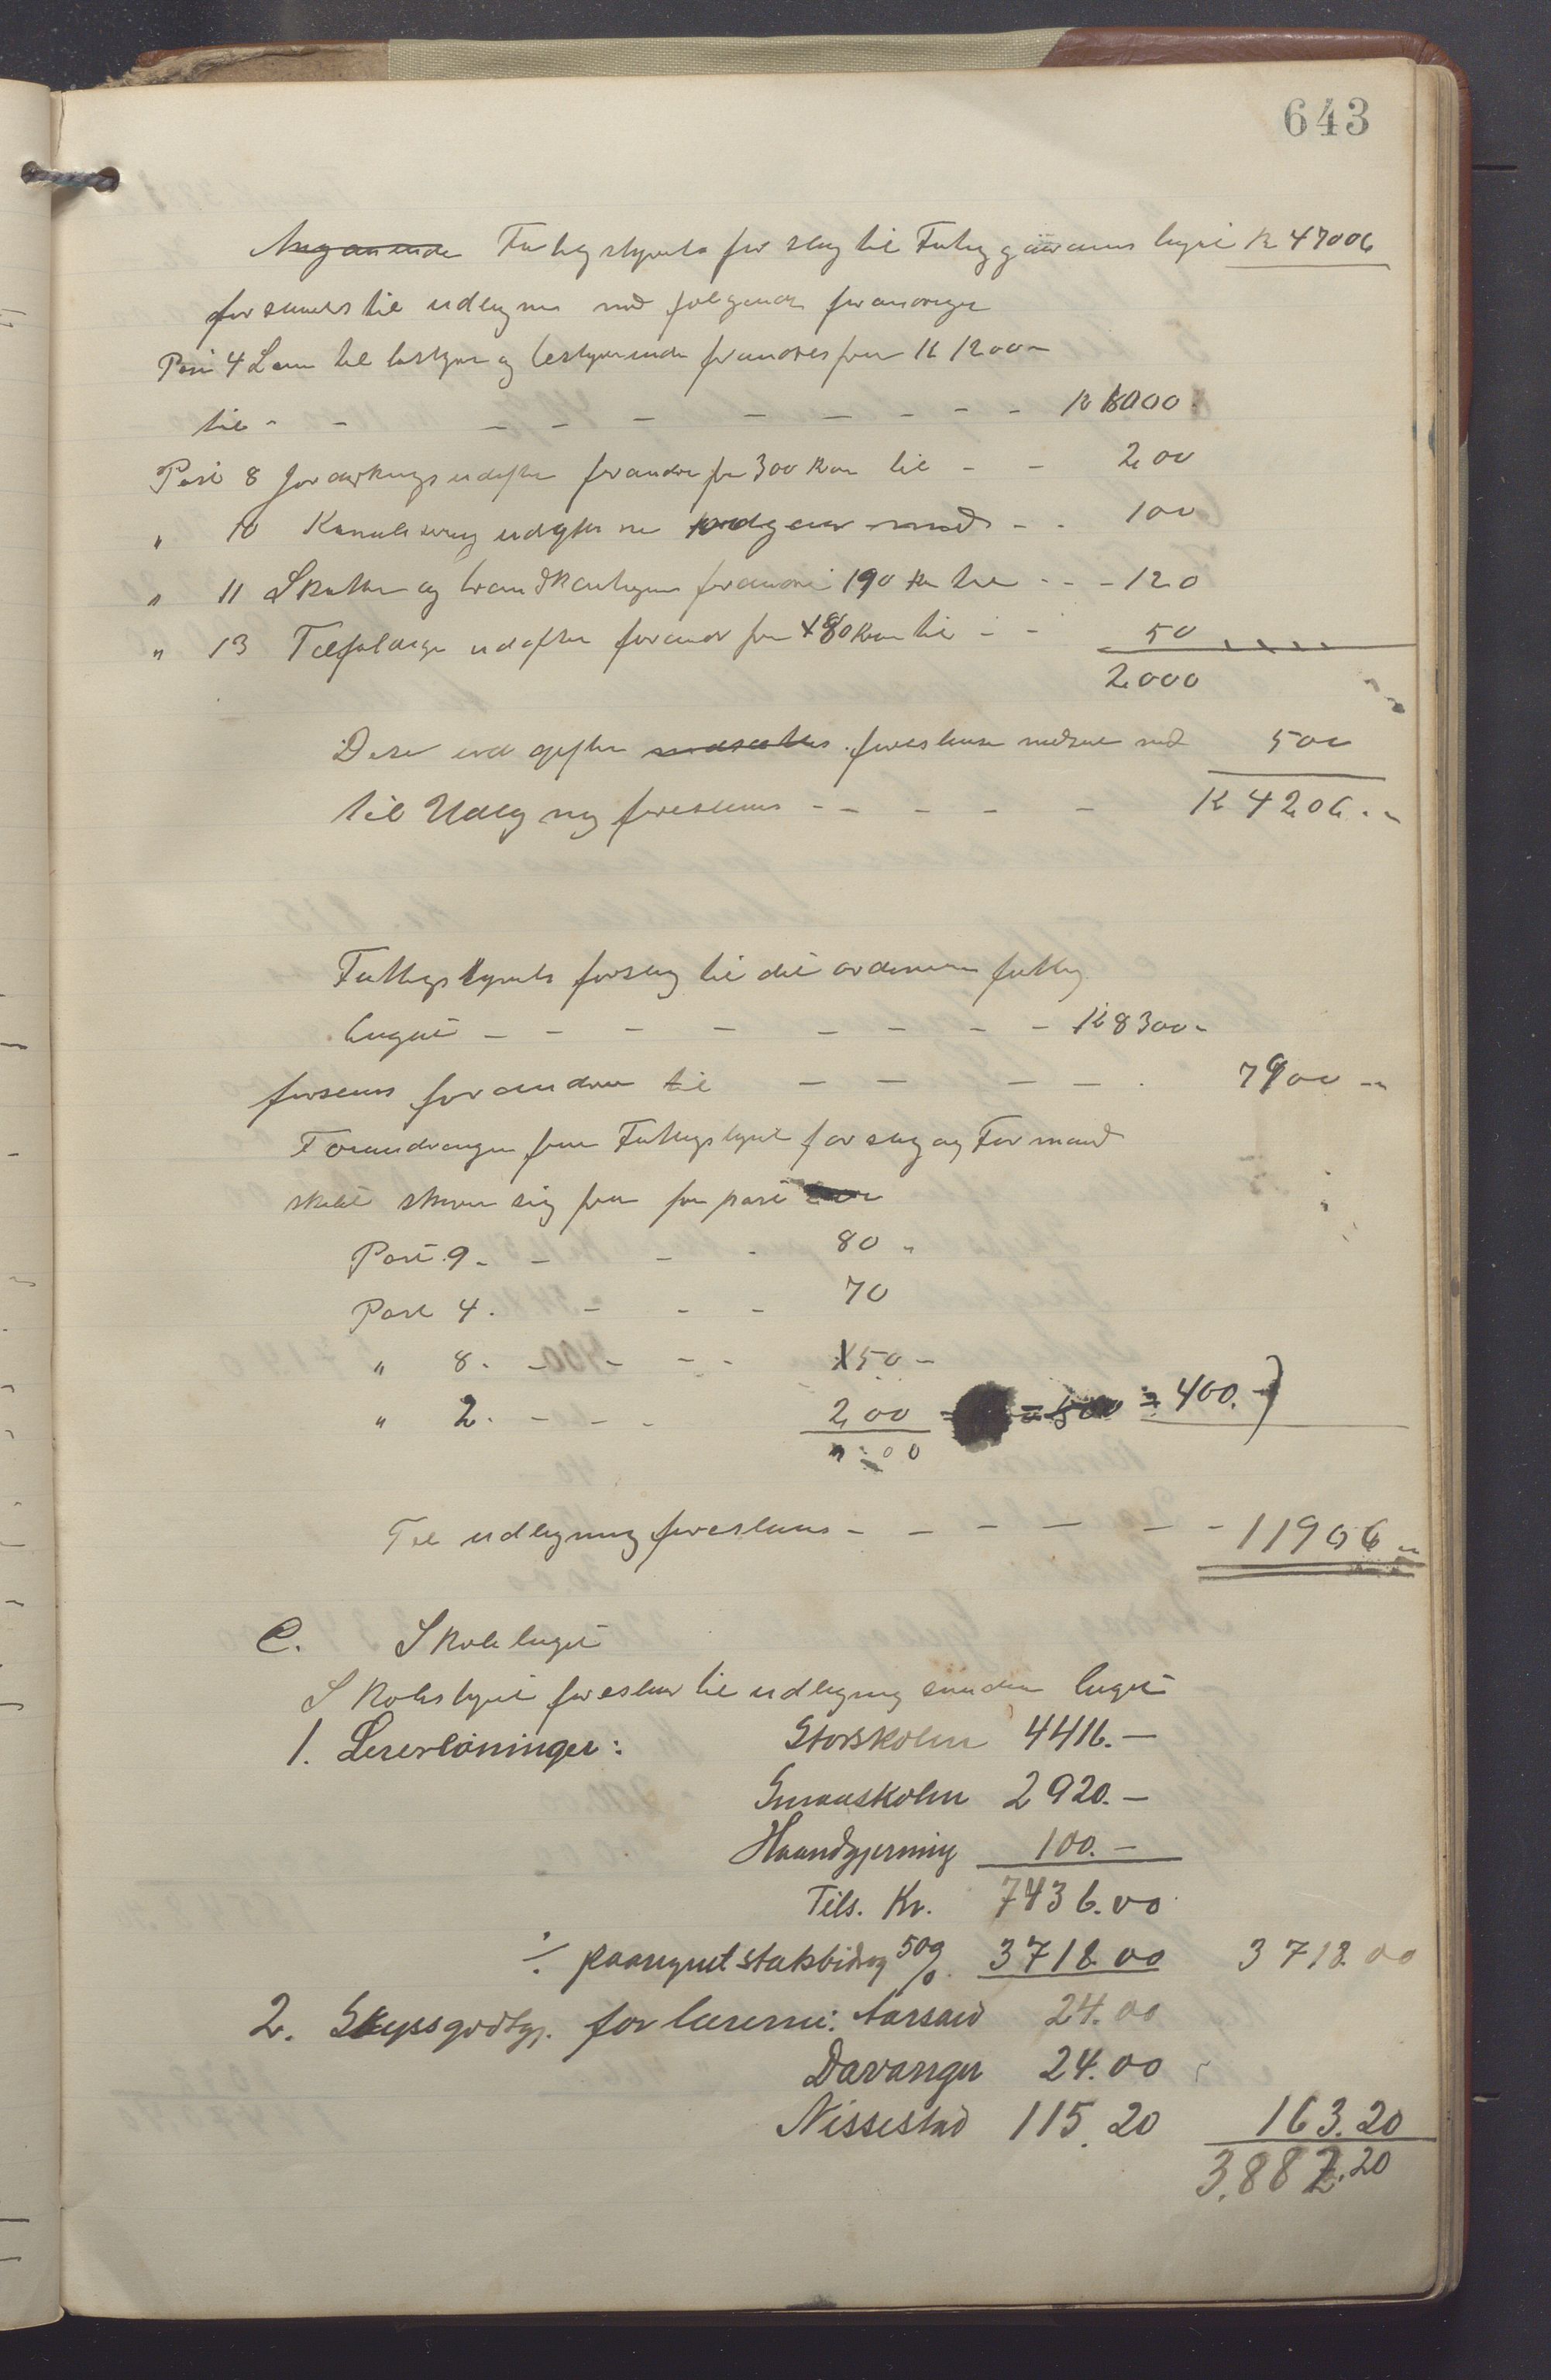 643
Angaaende Fattigstyrets forslag til Fattiggaarens buget K 47006
foreslaaes til udlegnes med følgende forandringer
Post 4 Løn til bestyrer og bestyrerinde forandres fra K 1200 -
til - - - - - - - - - K 1000.
Post 8 Jordyrkings udgifter forandres fra 300 Kroner til - - 200
" 10 Kanalisering udgifter ne - - 100
" 11 Skatter og brandkontigent forandres 190 Kr til - - - 120
" 13 Tilfældige udgifter forandr fra 80 Kroner til - - 50
2000
Disse udgifter foreslaaes nedsat med 500
til Udlegning foreslaaes - - - - - K 4206. -
Fattigstyrets forslag til det ordinære fattig
buget - - - - - - - - K 8300 -
foreslaaes forandret til - - - - - 7900 -
Forandringen fra Fattigstyret forslag og Formand
skabet skriver sig fra for post
Post 9 - - - - 80 -
Post 4. - - - 70
" 8. - - - - 50 -
" 2. - - - 200 = 400. -)
Til udlegning foreslaaes - - - - - - 11906 -
C. Skolebuget
Skolestyret foreslaar til udlegning saadan buget
1. Lererlöninger: Storskolen 4416. -
Smaaskolen 2920. -
Haandgjerning 100. -
Tils. Kr. 7436.00
÷ paaregnet statsbidrag 50% 3718.00 3718.00
2. Skyssgodtgj. for lærerne: Aarsand 24.00
Davanger 24.00
Nissestad 115.20 163.20
3.882.20